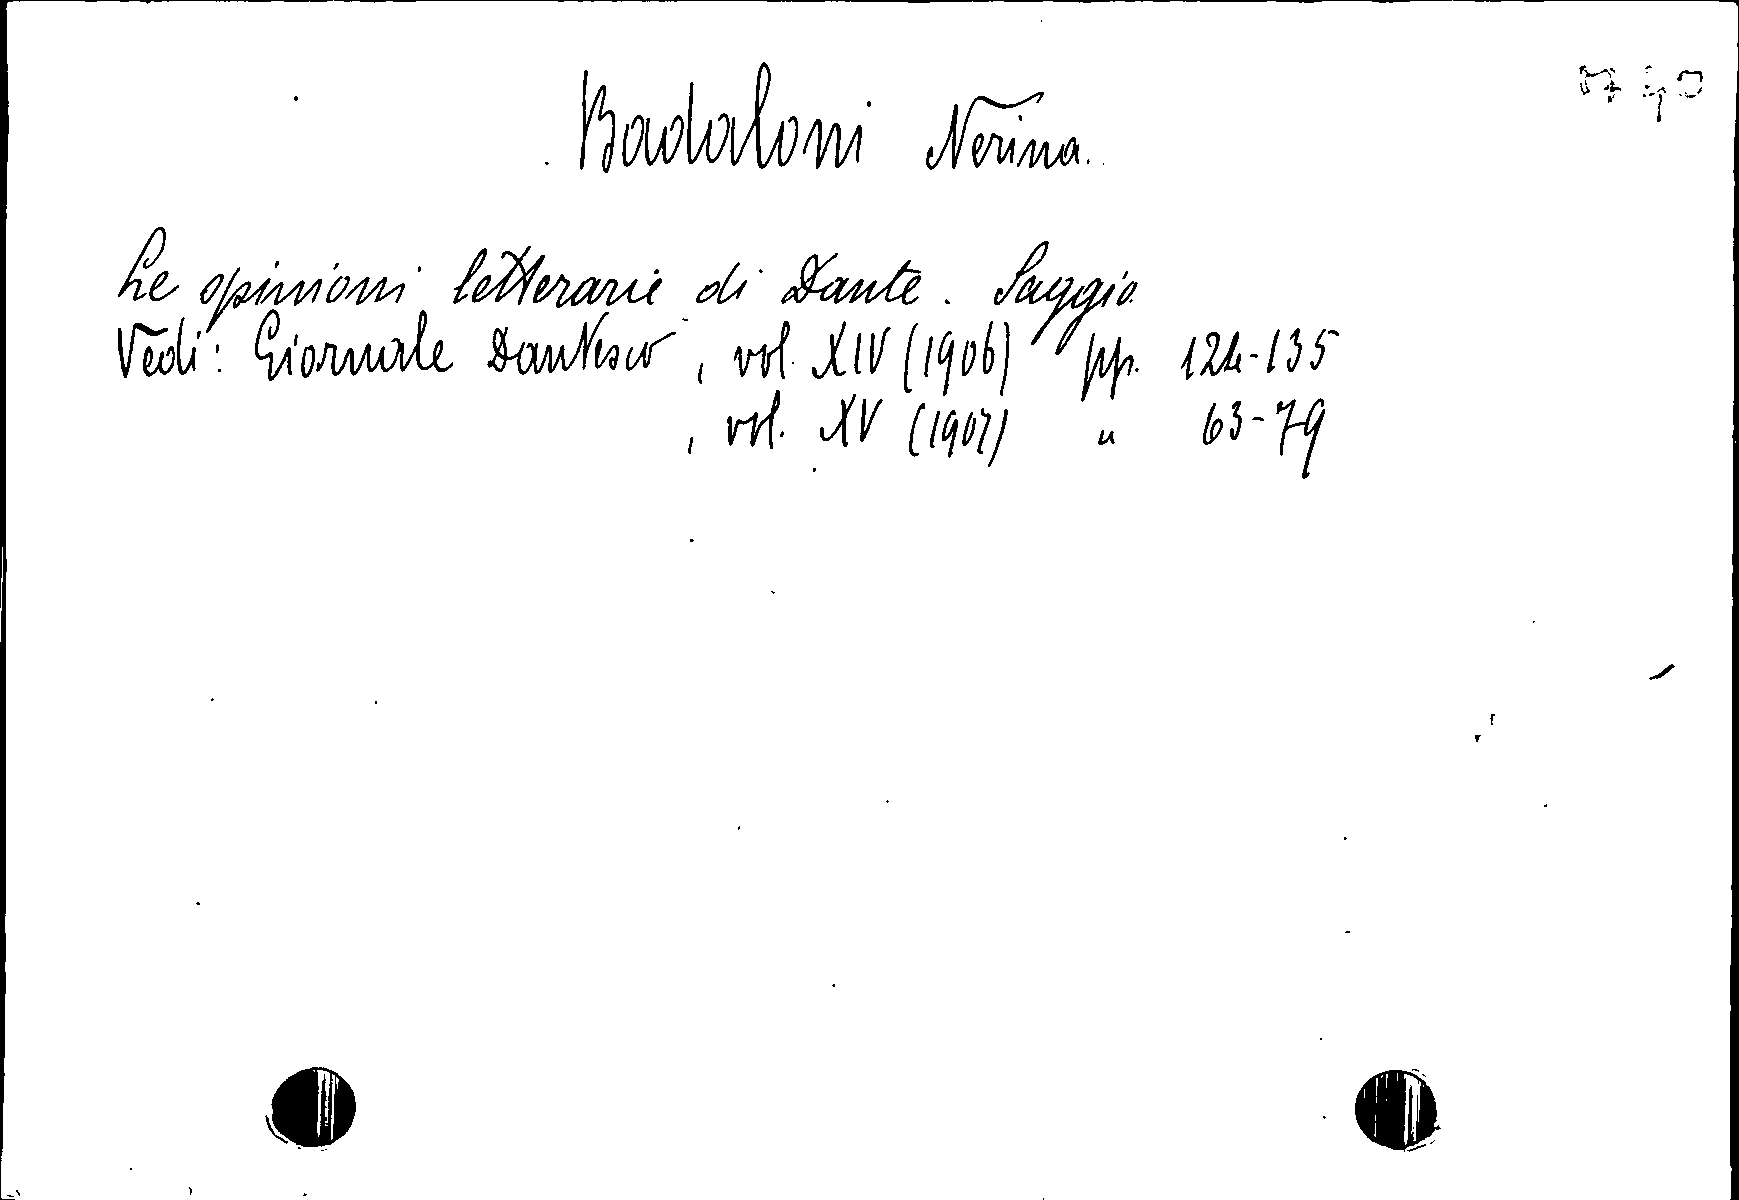 Badaloni Nerina.
Le opinioni letterarie di Dante. Saggio
Vedi: Giornale Dantesco, vol. XIV (1906) pp. 124-135
, vol. XV (1907) " 63-79